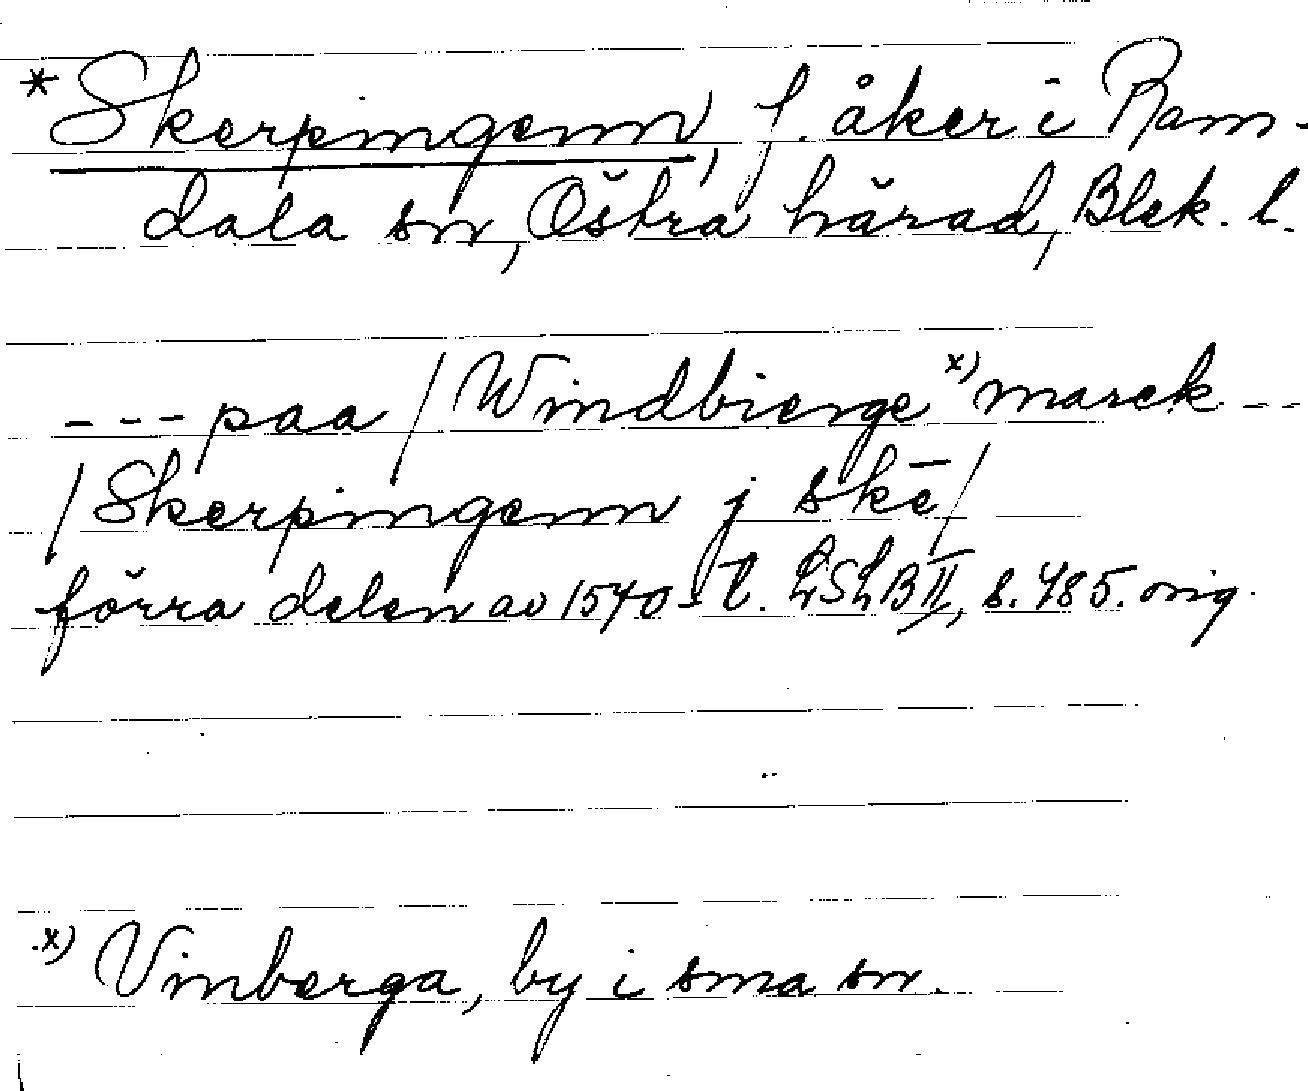 * Skerpingenn, f. åker i Ram-
dala sn, Östra härad, Blek. l.
--- paa / Windbierge x) marck ---
/ Skerpingenn j skē /
förra delen av 1540-t. LSLB II, s. 485. orig.
x) Vinberga, by i sma sn.